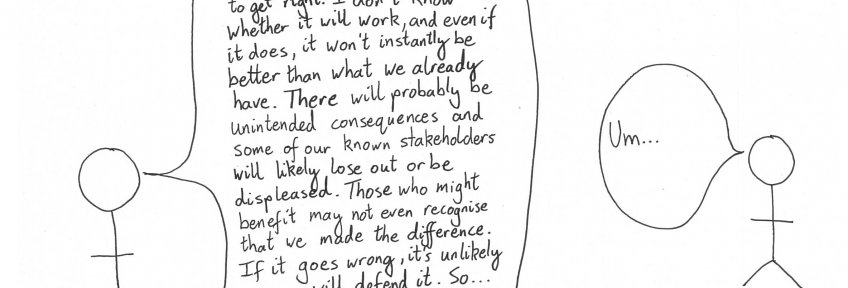 to get right. I don't know
whether it will work, and even if
it does, it won't instantly be
better than what we already
have. There will probably be
unintended consequences and
some of our known stakeholders
will likely lose out or be
displeased. Those who might
benefit may not even recognise
that we made the difference.
If it goes wrong, it's unlikely
will defend it. So...
Um...